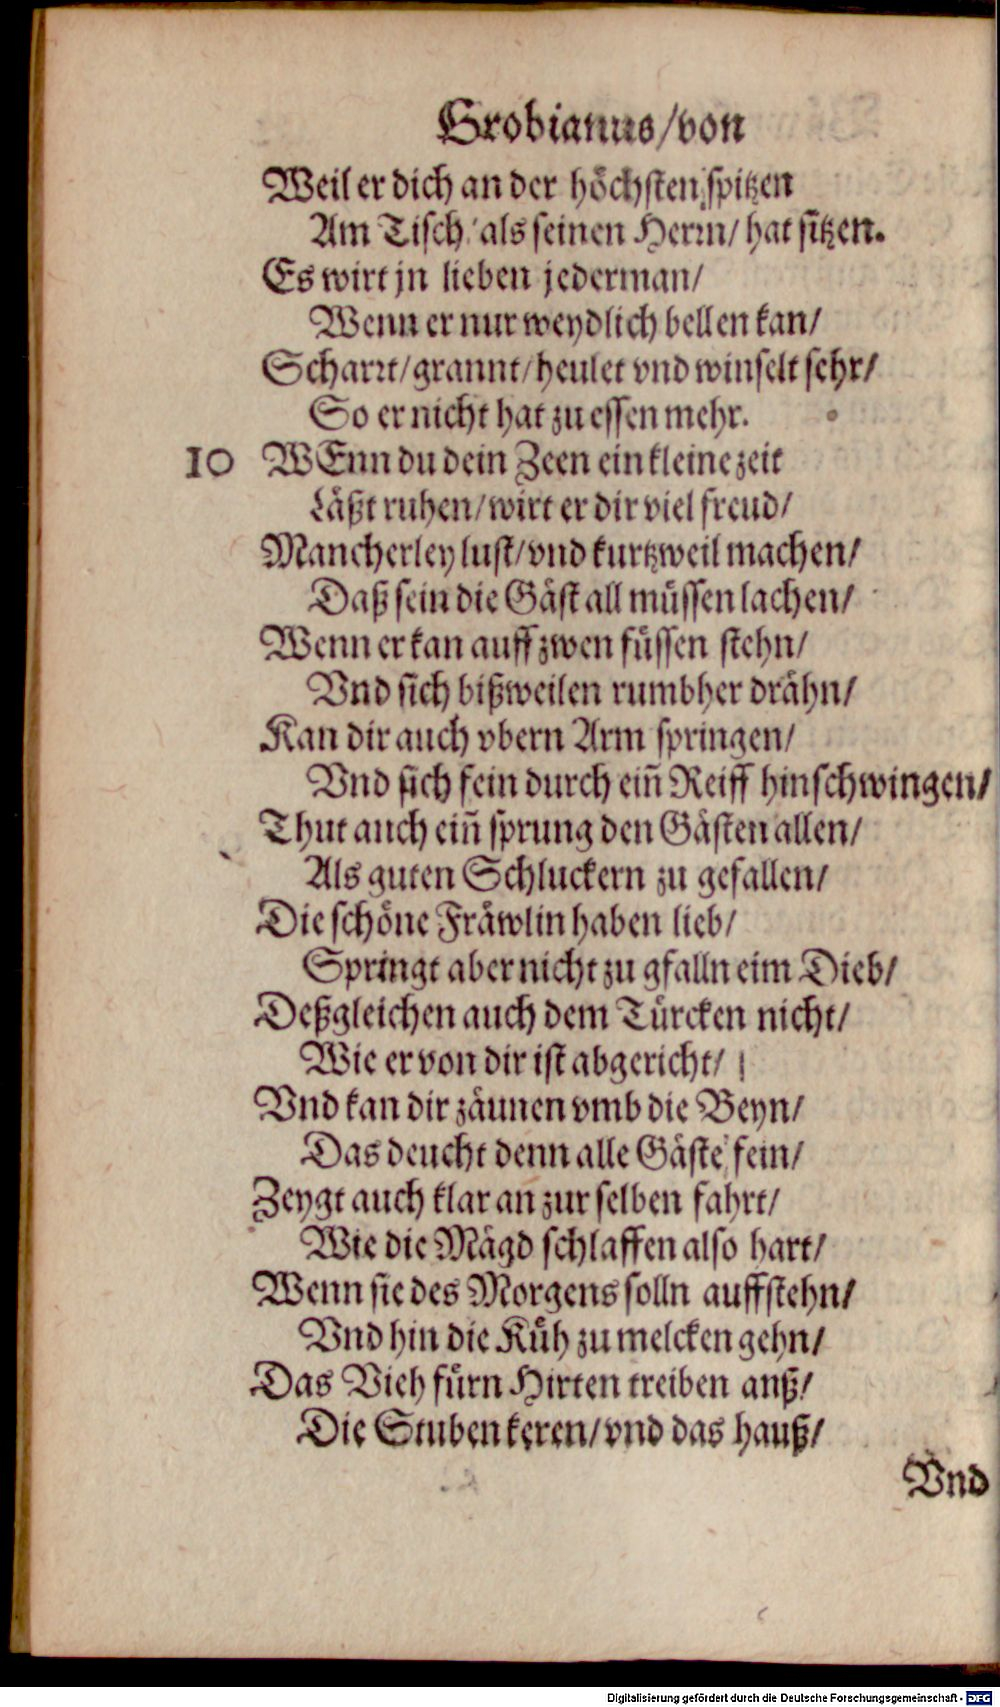 Grobianus/von
Weil er dich an der höchsten spitzen
Am Tisch/ als seinen Herrn/ hat sitzen.
Es wirt jn lieben jederman/
Wenn er nur weydlich bellen kan/
Scharrt/grannt/heulet vnd winselt sehr/
So er nicht hat zu essen mehr.
10 WEnn du dein Zeen ein kleine zeit
Läßt ruhen/wirt er dir viel freud/
Mancherley lust/vnd kurtzweil machen/
Daß sein die Gäst all müssen lachen/
Wenn er kan auff zwen füssen stehn/
Vnd sich bißweilen rumbher drähn/
Kan dir auch vbern Arm springen/
Vnd sich fein durch eiñ Reiff hinschwingen/
Thut auch eiñ sprung den Gästen allen/
Als guten Schluckern zu gefallen/
Die schöne Fräwlin haben lieb/
Springt aber nicht zu gfalln eim Dieb/
Deßgleichen auch dem Türcken nicht/
Wie er von dir ist abgericht/
Vnd kan dir zäunen vmb die Beyn/
Das deucht denn alle Gäste fein/
Zeygt auch klar an zur selben fahrt/
Wie die Mägd schlaffen also hart/
Wenn sie des Morgens solln auffstehn/
Vnd hin die Küh zu melcken gehn/
Das Vieh fürn Hirten treiben auß/
Die Stuben keren/vnd das hauß/
Vnd
Digitalisierung gefördert durch die Deutsche Forschungsgemeinschaft - DFG